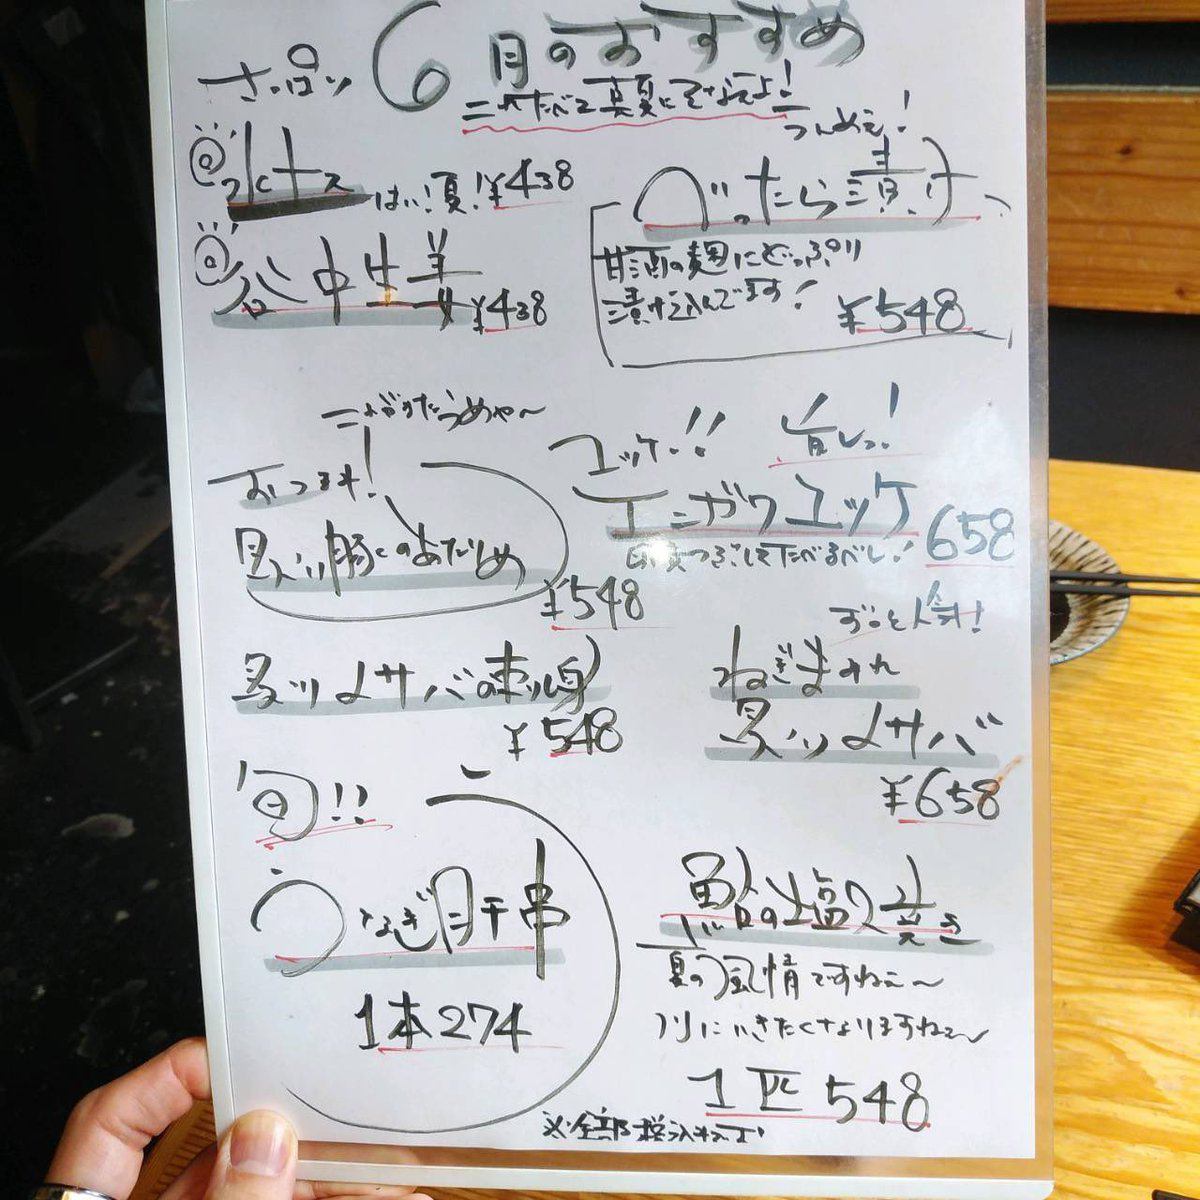 6月のおすすめ
これたべて真夏にそなえよ!
さっぱり
水ナス
はい!夏!¥438
谷中生姜
¥438
つんめぇ!
べったら漬け
甘酒の麹にどっぷり
漬け込んでます!
¥548
これがまたうめぇ~
おつまみ!
炙り豚とろあだしめ
¥548
ユッケ!!
旨しっ!
テニガワユッケ
658
つぶしてたべるべし!
炙りメサバの刺し身
¥548
ずっと人気!
ねぎまみれ
炙りメサバ
¥658
旬!!
うなぎ肝串
1本274
鮎の塩焼き
夏の風情ですねぇ~
川にいきたくなりますねぇ~
1匹548
※全部税込みです